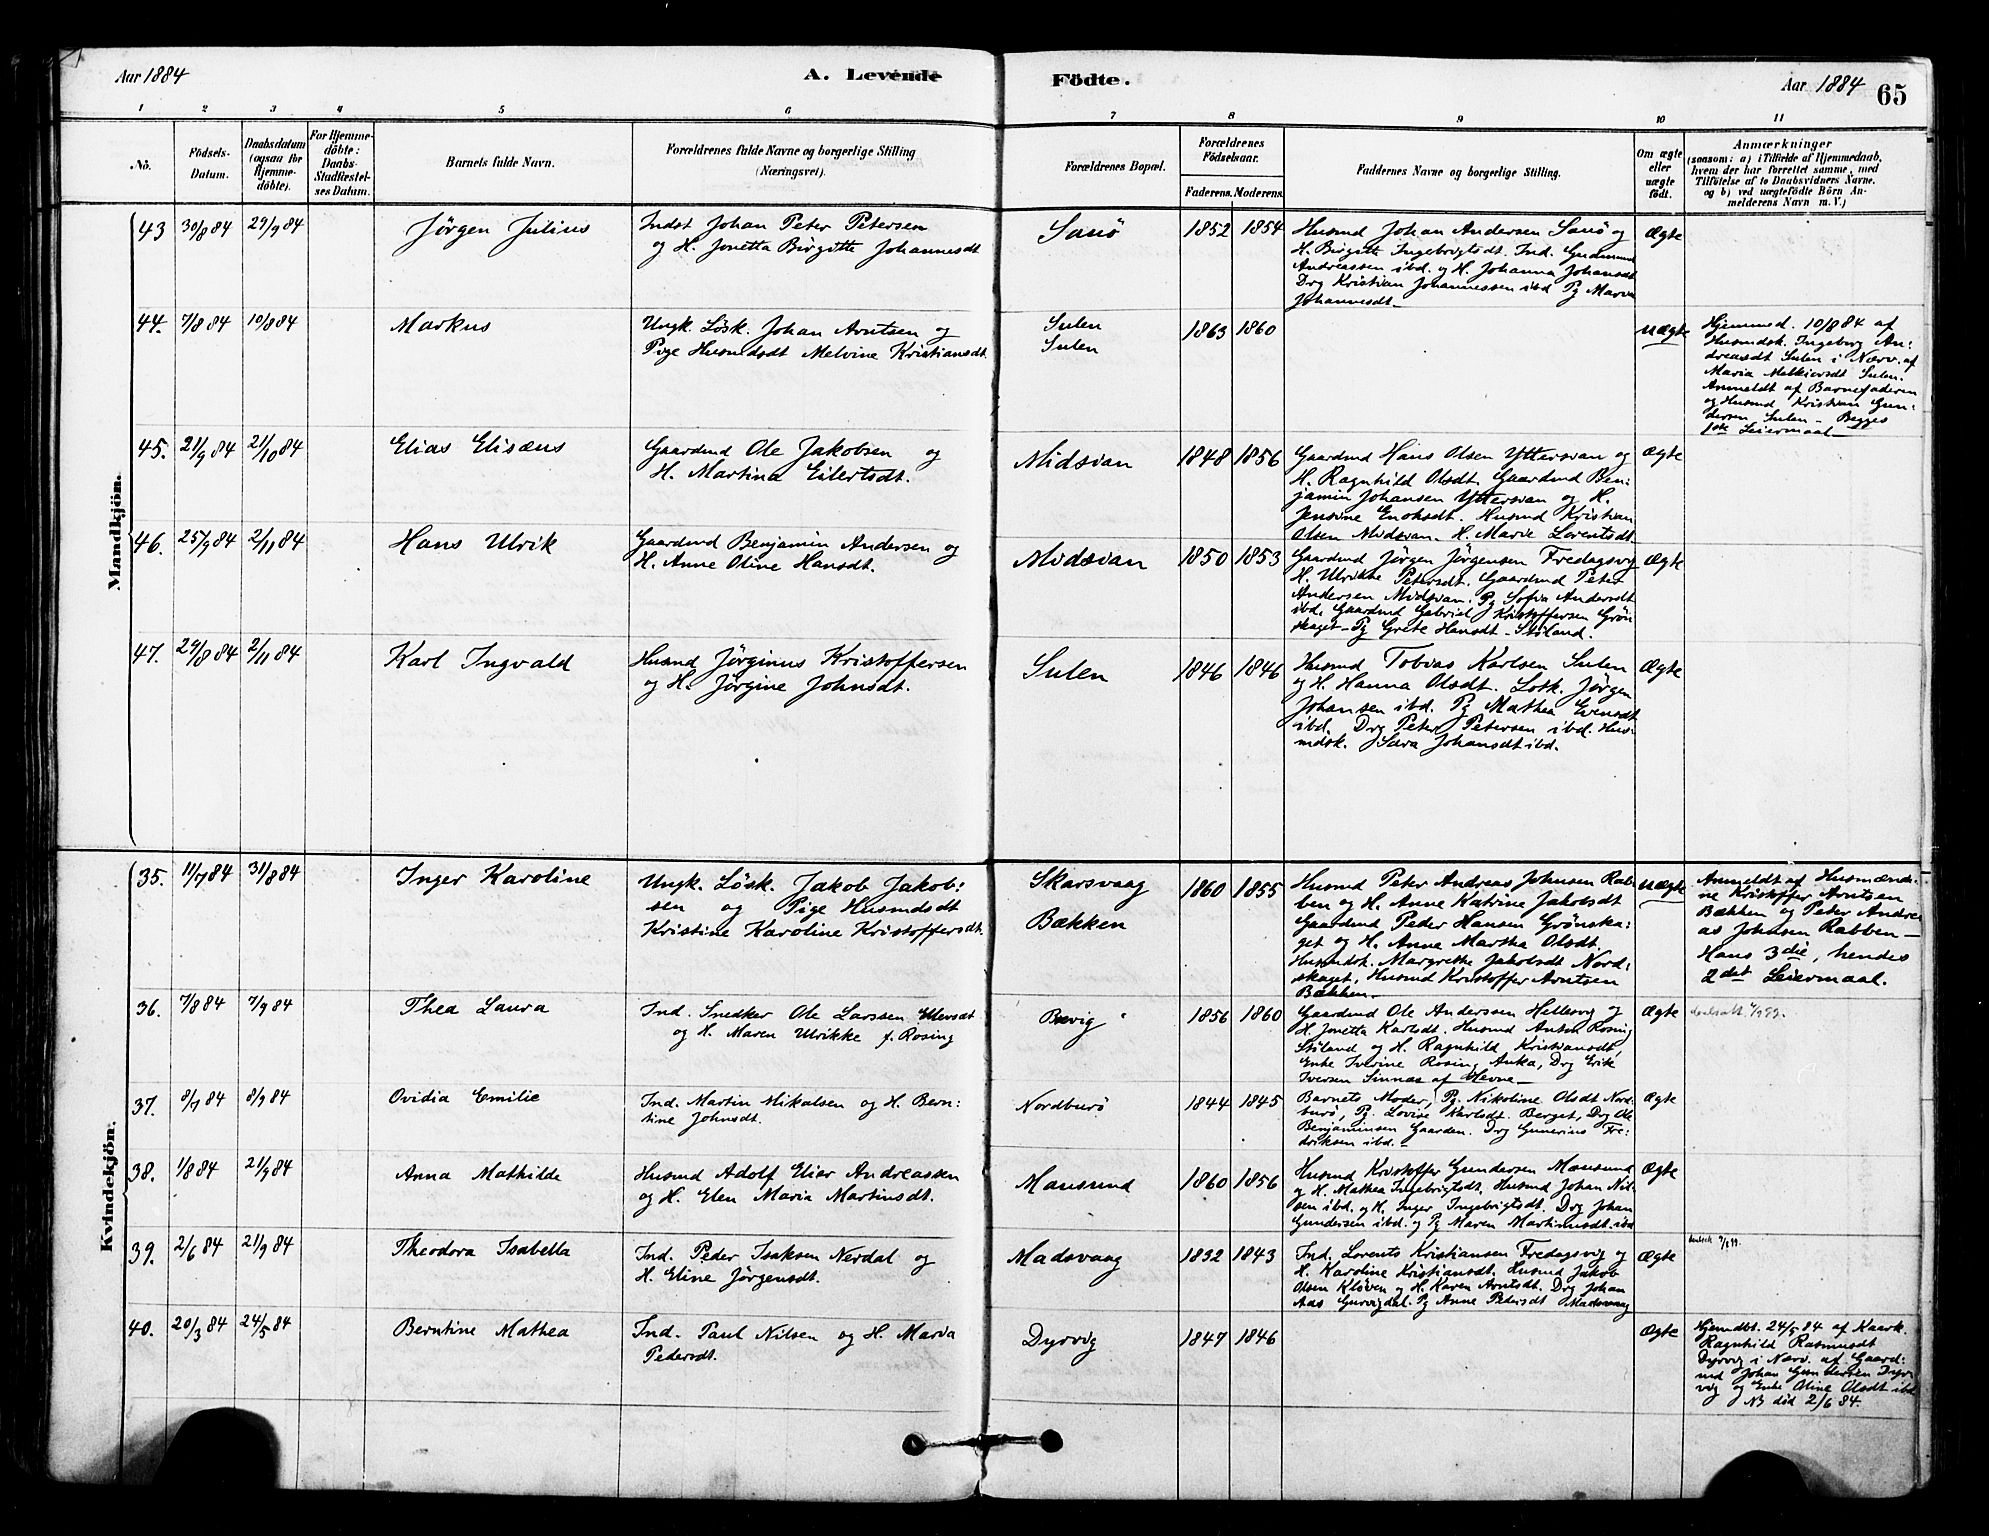 Aar 1884
A. Levende
Födte.
Aar 1884
65
1 2 3 4 5 6 7 8 9 10 11
No.
Födsels-
Datum.
Daabsdatum
(ogsaa for
Hjemme-
döbte).
For Hjemme-
döbte:
Daabs-
Stadfæstel-
ses Datum.
Barnets fulde Navn.
Forældrenes fulde Navne og borgerlige Stilling
(Næringsvei).
Forældrenes Bopæl.
Forældrenes
Födselsaar.
Faderens. Moderens.
Faddernes Navne og borgerlige Stilling.
Om ægte
eller
uægte
födt.
Anmærkninger
(saasom: a) i Tilfælde af Hjemmedaab,
hvem der har forrettet samme, med
Tilföielse af to Daabsvidners Navne,
og b) ved uægtefödte Börn An-
melderens Navn m. V.)
Mandkjön.
43 30/8 84 29/9 84
Jørgen Julius
Indst Johan Peter Petersen
og H. Jonetta Birgitte Johannesdt
Sanö
1852 1854
Husmd Johan Andersen Sanö og
H. Birgitte Ingebrigtsdt. Ind. Gudmund
Andreassen ibd. og H. Johanna Johansdt
Drg Kristian Johannessen ibd Pg Maria
Johannesdt
Ægte
44. 7/8 84 10/8 84
Markus
Ungk. Lösk. Johan Arntsen og
Pige Husmdsdt Melvine Kristiansdt
Sulen
Sulen
1863 1860
uægte
Hjemmed. 10/8 84 af
Husmdsk. Ingeborg An-
dreasdt Sulen i Nærv. af
Maria Melkiorsdt Sulen.
Anmeldt af Barnefaderen
og Husmd Kristian Gun-
dersen Sulen - Begges
1ste Leiermaal
45. 21/9 84 21/10 84
Elias Elisæus
Gaardmd Ole Jakobsen og
H. Martina Eilertsdt.
Midsian
1848 1856
Gaardmd Hans Olsen Yttersian og
H. Ragnhild Olsdt. Gaardmd Ben-
jamin Johansen Yttersian og H.
Jensine Enoksdt. Husmd Kristian
Olsen Midsian. H. Marie Lorentsdt
Ægte
46. 25/9 84 2/11 84
Hans Ulrik
Gaardmd Benjamin Andersen og
H. Anne Oline Hansdt.
Midsian
1850 1853
Gaardmd Jörgen Jörgensen Fredagsvig
H. Ulrikke Petersdt. Gaardmd Peter
Andersen Midsian. Pg Sofia Andersdt
ibd. Gaardmd Gabriel Kristoffersen Grön-
skaget - Pg Grete Hansdt - Stöland.
Ægte
47. 29/8 84 2/11 84
Karl Ingvald
Husmd Jörginus Kristoffersen
og H. Jörgine Johnsdt.
Sulen
1846 1846
Husmd Tobias Karlsen Sulen
og H. Hanna Olsdt. Losk. Jörgen
Johansen ibd. Pg Mathea Evensdt
ibd. Drg Peter Petersen ibd. Hus-
mdsk. Sara Johansdt ibd.
Ægte
Kvindekjön.
35. 11/7 84 31/8 84
Inger Karoline
Ungk. Lösk. Jakob Jakob-
sen og Pige Husmdsdt
Kristine Karoline Kristoffersdt.
Skarsvaag
Bækken
1860 1855
Husmd Peter Andreas Johnsen Rab-
ben og H. Anne Katrine Jakobsdt
Gaardmd Peder Hansen Grönska-
get og H. Anne Martha Olsdt.
Husmdsk. Margrethe Jakobsdt Nord-
skaget, Husmd Kristoffer Arntsen
Bækken.
uægte
Anmeldt af Husmænde-
ne Kristoffer Arntsen
Bækken og Peter Andre-
as Johnsen Rabben -
Hans 3die, hendes
2det Leiermaal.
36. 7/8 84 7/9 84
Thea Laura
Ind. Snedker Ole Larssen
og H. Maren Ulrikke f. Rosing
Bevig
1856 1860
Gaardmd Ole Anderssen Hellesvig og
H. Jonetta Karlsdt. Husmd Anton Rosing
Stöland og H. Ragnhild Kristiansdt
Enke Iverine Rosing Anka, Drg Erik
Iversen Sinnæs af Hevne
Ægte
37. 8/7 84 8/9 84
Ovidia Emilie
Ind. Martin Mikalsen og H. Bern-
tine Johnsdt.
Nordburö
1844 1845
Barnets Moder, Pg. Nikoline Olsdt Nord-
burö, Pg. Lovise Karlsdt. Berget, Drg Ole
Benjaminsen Gaarden. Drg Gunerius Fre-
driksen ibd.
Ægte
38. 1/8 84 21/9 84
Anna Mathilde
Husmd Adolf Elias Andreassen
og H. Elen Maria Martinsdt.
Mausund
1860 1856
Husmd Kristoffer Gundersen Mausund
og H. Mathea Ingebrigtsdt. Husmd Johan Nil-
sen ibd. og H. Inger Ingebrigtsdt. Drg Johan
Gundersen ibd. og Pg Maren Martinusdt. ibd
Ægte
39. 2/6 84 21/9 84
Theodora Isabella
Ind. Peder Isaksen Nerdal og
H. Eline Jörgensdt.
Madsvaag
1832 1843
Ind. Lorents Kristiansen Fredagsvig og
H. Karoline Kristiansdt. Husmd Jakob
Olsen Klöven og H. Karen Arntsdt. Drg Johan
Aas Gurvigdal. Pg Anne Petersdt Madsvaag
Ægte
40. 20/3 84 24/5 84
Berntine Mathea
Ind. Paul Nilsen og H. Maria
Pedersdt.
Dyrvig
1847 1846
Ægte
Hjemdbt. 24/5 84 af
Ragnhild Rasmusdt
Dyrvig i Nærv. af Gaard-
md Johan Gundersen Dyr-
vig og Enke Oline Olsdt ibd
NB död 2/6 84.